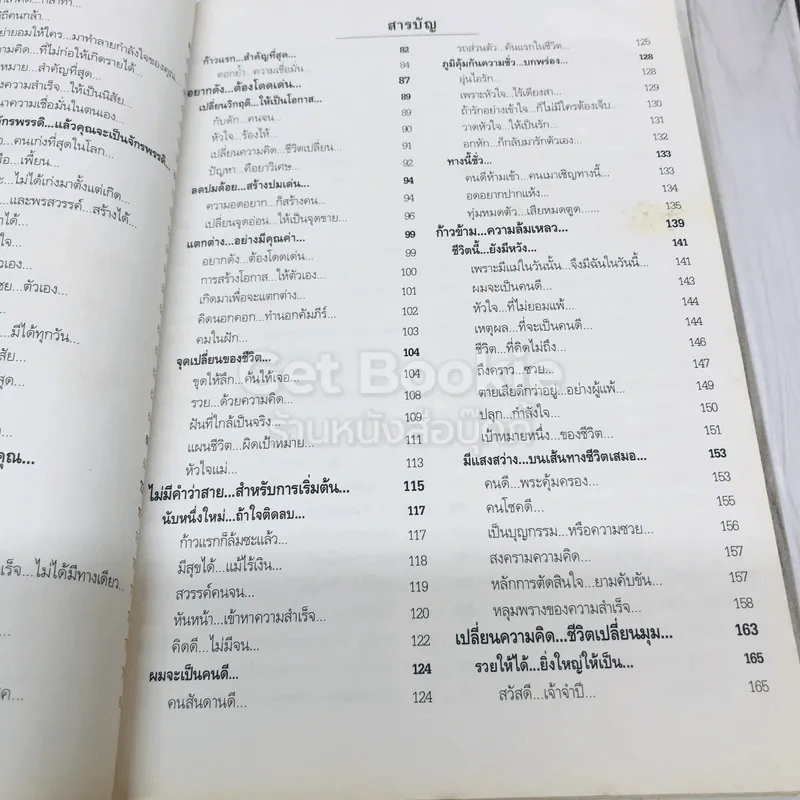 ถือคนกล้า...
อย่ายอมให้ใคร...มาทำลายกำลังใจของคุณ
ความคิด...ที่ไม่ก่อให้เกิดรายได้...
หมาย...สำคัญที่สุด...
ความสำเร็จ...ให้เป็นนิสัย...
ความเชื่อมั่นในตนเอง...
จักรพรรดิ...แล้วคุณจะเป็นจักรพรรดิ...
คนเก่งที่สุดในโลก...
เพี้ยน...
...ไม่ได้เก่งมาตั้งแต่เกิด...
...และพรสวรรค์...สร้างได้...
ตัวเอง...
...มีได้ทุกวัน...
คุณ...
...ไม่ได้มีทางเดียว...
สารบัญ
ก้าวแรก...สำคัญที่สุด... 82
ตอกย้ำ...ความเชื่อมั่น... 84
อยากดัง...ต้องโดดเด่น... 87
เปลี่ยนวิกฤติ...ให้เป็นโอกาส... 89
กับดัก...คนจน... 89
หัวใจ...ร้องไห้... 90
เปลี่ยนความคิด...ชีวิตเปลี่ยน... 91
ปัญหา...คือยาวิเศษ... 92
ลดปมด้อย...สร้างปมเด่น... 94
ความอดอยาก...ก็สร้างคน... 94
เปลี่ยนจุดอ่อน...ให้เป็นจุดขาย... 96
แตกต่าง...อย่างมีคุณค่า... 99
อยากดัง...ต้องโดดเด่น... 99
การสร้างโอกาส...ให้ตัวเอง... 100
เกิดมาเพื่อจะแตกต่าง... 101
คิดนอกคอก...ทำนอกคัมภีร์... 102
คมในฝัก... 103
จุดเปลี่ยนของชีวิต... 104
ขุดให้ลึก...ค้นให้เจอ... 104
รวย...ด้วยความคิด... 108
ฝันที่ใกล้เป็นจริง... 109
แผนชีวิต...ผิดเป้าหมาย... 111
หัวใจแม่... 113
ไม่มีคำว่าสาย...สำหรับการเริ่มต้น... 115
นับหนึ่งใหม่...ถ้าใจติดลบ... 117
ก้าวแรกก็ล้มซะแล้ว... 117
มีสุขได้...แม้ไร้เงิน... 118
สวรรค์คนจน... 119
หันหน้า...เข้าหาความสำเร็จ... 120
คิดดี...ไม่มีจน... 122
ผมจะเป็นคนดี... 124
คนสันดานดี... 124
รถส่วนตัว...คันแรกในชีวิต... 125
ภูมิคุ้มกันความชั่ว...บกพร่อง... 128
อุ่นไอรัก... 128
เพราะหัวใจ...ไร้เดียงสา... 129
ถ้ารักอย่างเข้าใจ...ก็ไม่มีใครต้องเจ็บ... 130
วาดหัวใจ...ให้เป็นรัก... 131
อกหัก...ก็กลับมารักตัวเอง... 132
ทางนี้ชั่ว... 133
คนดีห้ามเข้า...คนเมาเชิญทางนี้... 133
อดอยากปากแห้ง... 134
ทุ่มหมดตัว...เสียหมดตูด...... 135
ก้าวข้าม...ความล้มเหลว... 139
ชีวิตนี้...ยังมีหวัง... 141
เพราะมีแม่ในวันนั้น...จึงมีฉันในวันนี้... 141
ผมจะเป็นคนดี... 143
หัวใจ...ที่ไม่ยอมแพ้... 144
เหตุผล...ที่จะเป็นคนดี... 144
ชีวิต...ที่คิดไม่ถึง... 146
ถึงคราว...ซวย... 147
ตายเสียดีกว่าอยู่...อย่างผู้แพ้... 149
ปลุก...กำลังใจ... 150
เป้าหมายหนึ่ง...ของชีวิต... 151
มีแสงสว่าง...บนเส้นทางชีวิตเสมอ... 153
คนดี...พระคุ้มครอง... 153
คนโชคดี... 155
เป็นบุญกรรม...หรือความซวย... 156
สงครามความคิด... 157
หลักการตัดสินใจ...ยามคับขัน... 157
หลุมพรางของความสำเร็จ... 158
เปลี่ยนความคิด...ชีวิตเปลี่ยนมุม... 163
รวยให้ได้...ยิ่งใหญ่ให้เป็น... 165
สวัสดี...เจ้าจำปี... 165
Get Bookie
ร้านหนังสือบุ๊คกี้